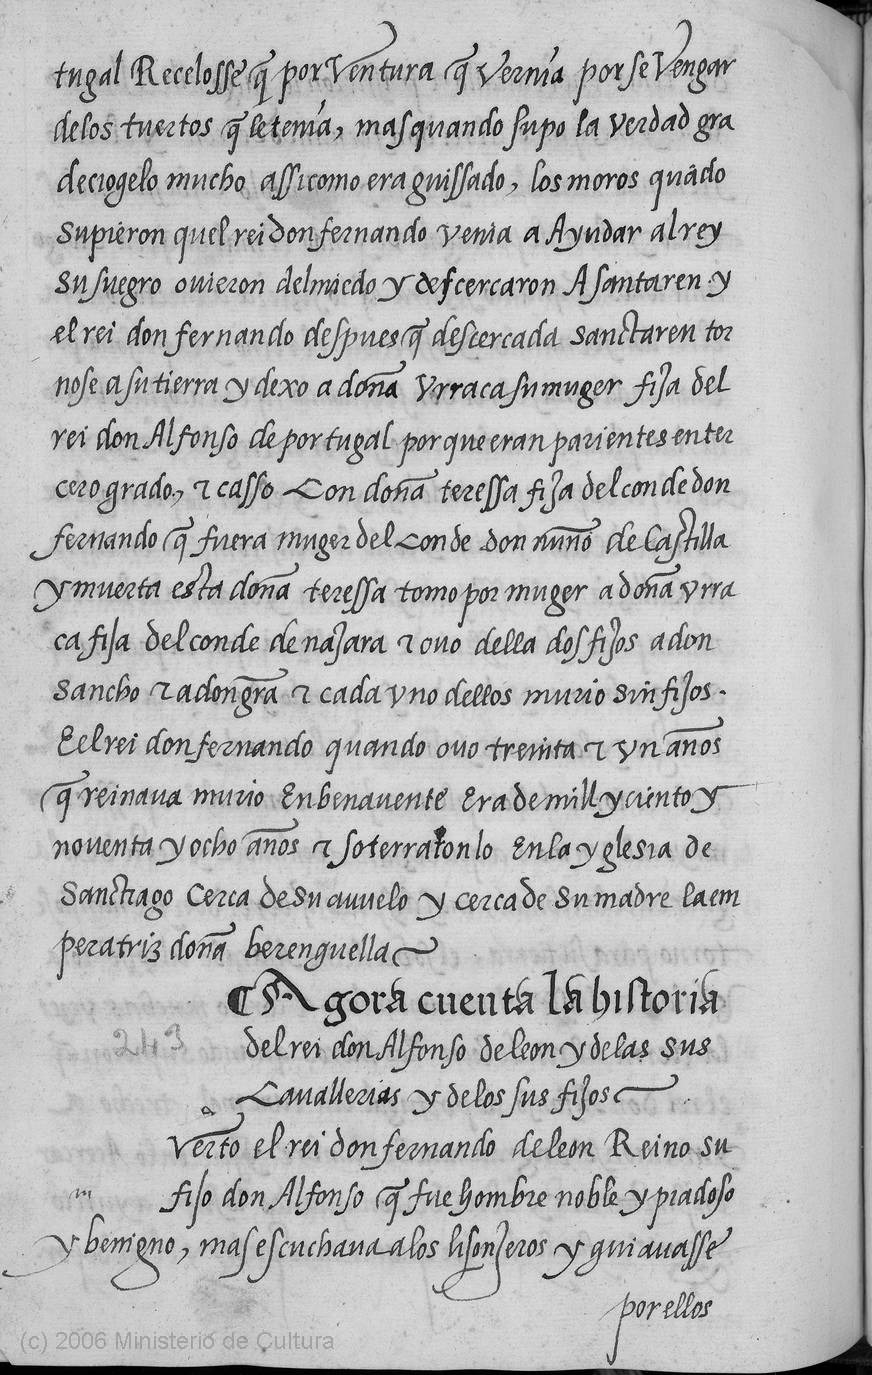 tugal Recelosse q̃ por Ventura q̃ Vernia por se Vengar
delos tuertos q̃ le tenia, mas quando supo la verdad gra
deciogelo mucho assi como era guissado, los moros quãdo
supieron quel rei don fernando venia a Ayudar al rey
su suegro ovieron del miedo y descercaron A santaren y
el rei don fernando despues q̃ descercada sanctaren tor
nose a su tierra y dexo a doña Vrraca su muger fija del
rei don Alfonso de portugal porque eran parientes en ter
cero grado, τ casso Con doña teressa fija del conde don
fernando q̃ fuera muger del Conde don nuño de Castilla
y muerta esta doña teressa tomo por muger a doña vrra
ca fija del conde de najara τ ovo della dos fijos a don
sancho τ a don gr̃a τ cada vno dellos murio sin fijos.
E el rei don fernando quando ovo treinta τ vn años
q̃ reinava murio En benavente Era de mill y ciento y
noventa y ocho años τ soterraronlo En la yglesia de
Sanctiago Cerca de su avuelo y cerca de su madre la em
peratriz doña berenguella
¶ Agora cuenta la historia
243
del rei don Alfonso de leon y de las sus
Cavallerias y de los sus fijos
a
Verto el rei don fernando de leon Reino su
m
fijo don Alfonso q̃ fue hombre noble y piadoso
y benigno, mas escuchava a los lisonjeros y guiavasse
por ellos
(c) 2006 Ministerio de Cultura